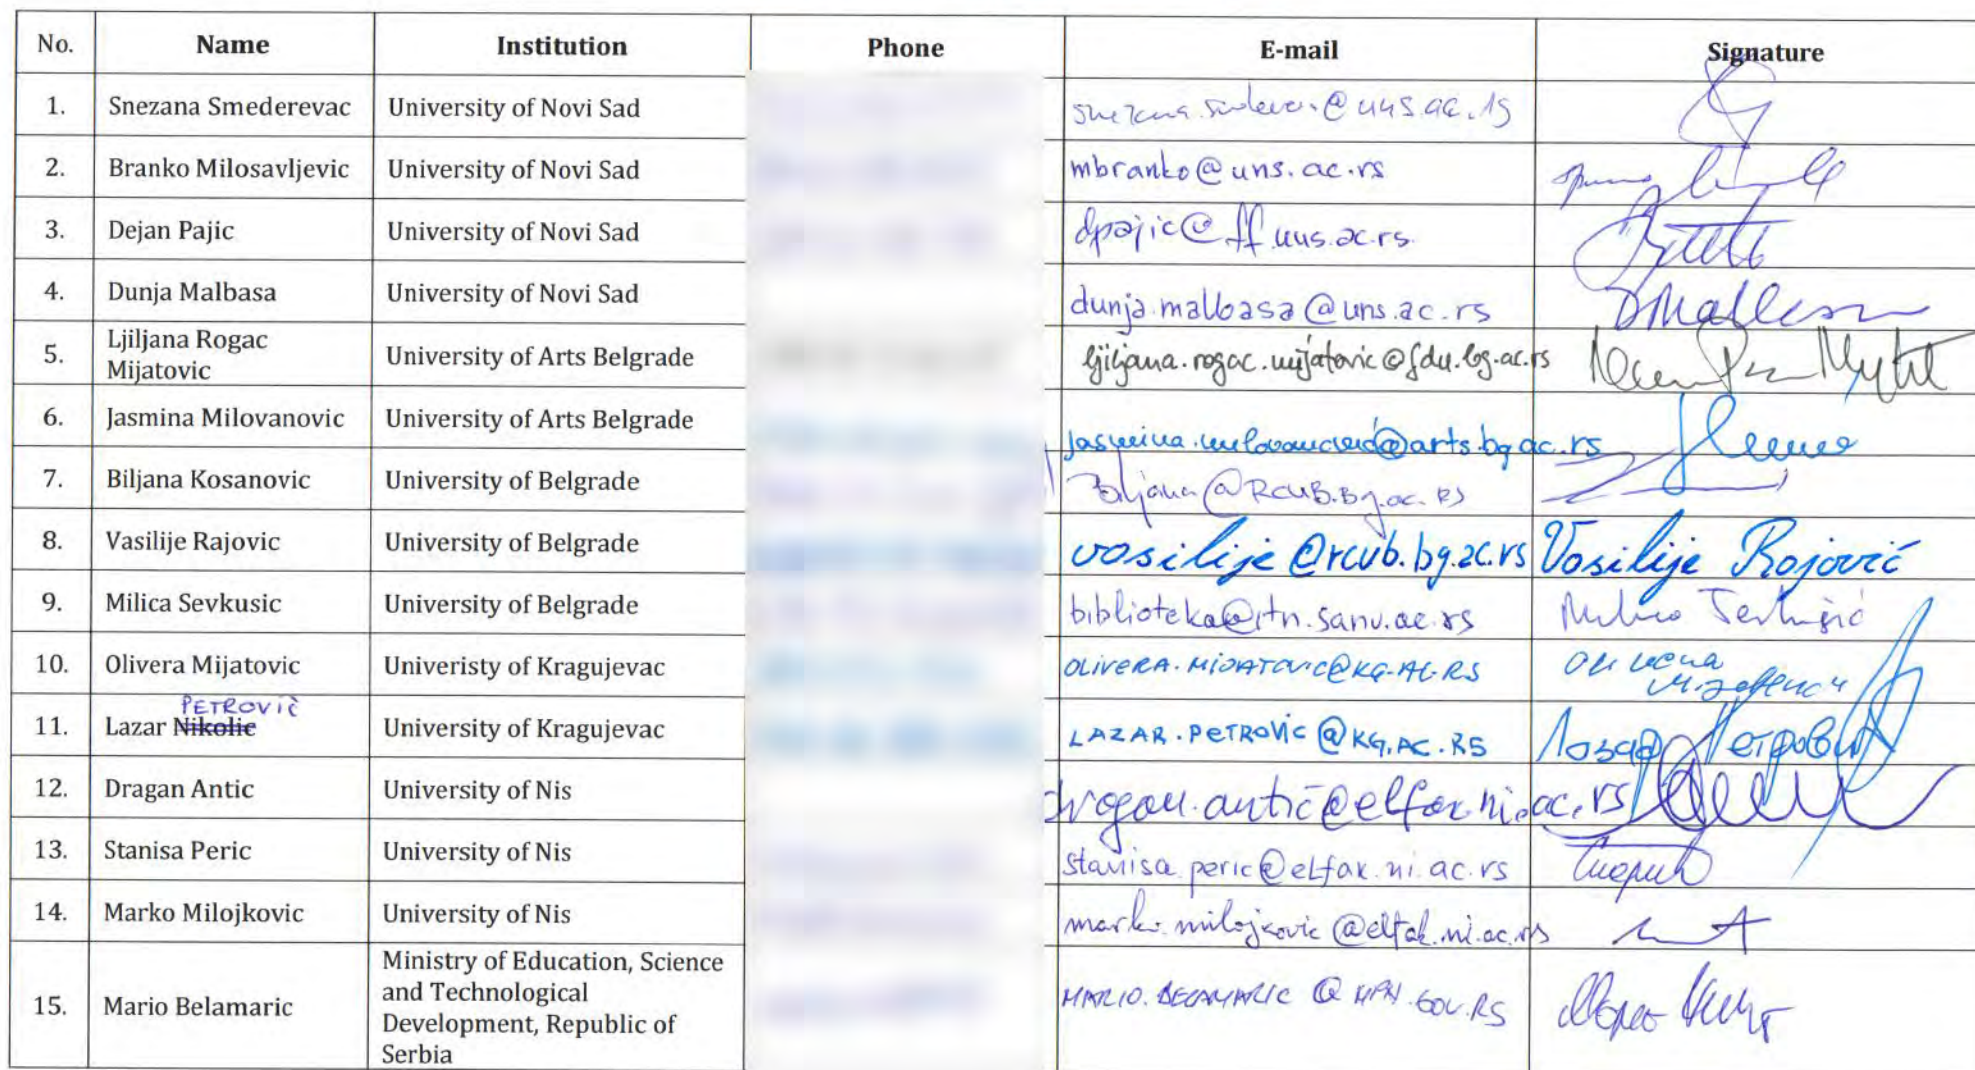 No. Name Institution Phone E-mail Signature
1. Snezana Smederevac University of Novi Sad
2. Branko Milosavljevic University of Novi Sad mbranko@uns.ac.rs
3. Dejan Pajic University of Novi Sad dpajic@ff.uns.ac.rs
4. Dunja Malbasa University of Novi Sad dunja.malbasa@uns.ac.rs DMalbasa
5. Ljiljana Rogac
Mijatovic University of Arts Belgrade ljiljana.rogac.mijatovic@fdu.bg.ac.rs
6. Jasmina Milovanovic University of Arts Belgrade jasmina.milovanovic@arts.bg.ac.rs
7. Biljana Kosanovic University of Belgrade Biljana@RCUB.Bg.ac.RS
8. Vasilije Rajovic University of Belgrade vasilije@rcub.bg.ac.rs Vasilije Rajović
9. Milica Sevkusic University of Belgrade biblioteka@itn.sanu.ac.rs
10. Olivera Mijatovic Univeristy of Kragujevac OLIVERA.MIJATOVIC@KG.AC.RS
PETROVIĆ
11. Lazar Nikolic University of Kragujevac LAZAR.PETROVIC@KG.AC.RS Лазар Петровић
12. Dragan Antic University of Nis dragan.antic@elfak.ni.ac.rs
13. Stanisa Peric University of Nis stanisa.peric@elfak.ni.ac.rs
14. Marko Milojkovic University of Nis marko.milojkovic@elfak.ni.ac.rs
15. Mario Belamaric Ministry of Education, Science
and Technological
Development, Republic of
Serbia MARIO.BELAMARIC@MPN.GOV.RS